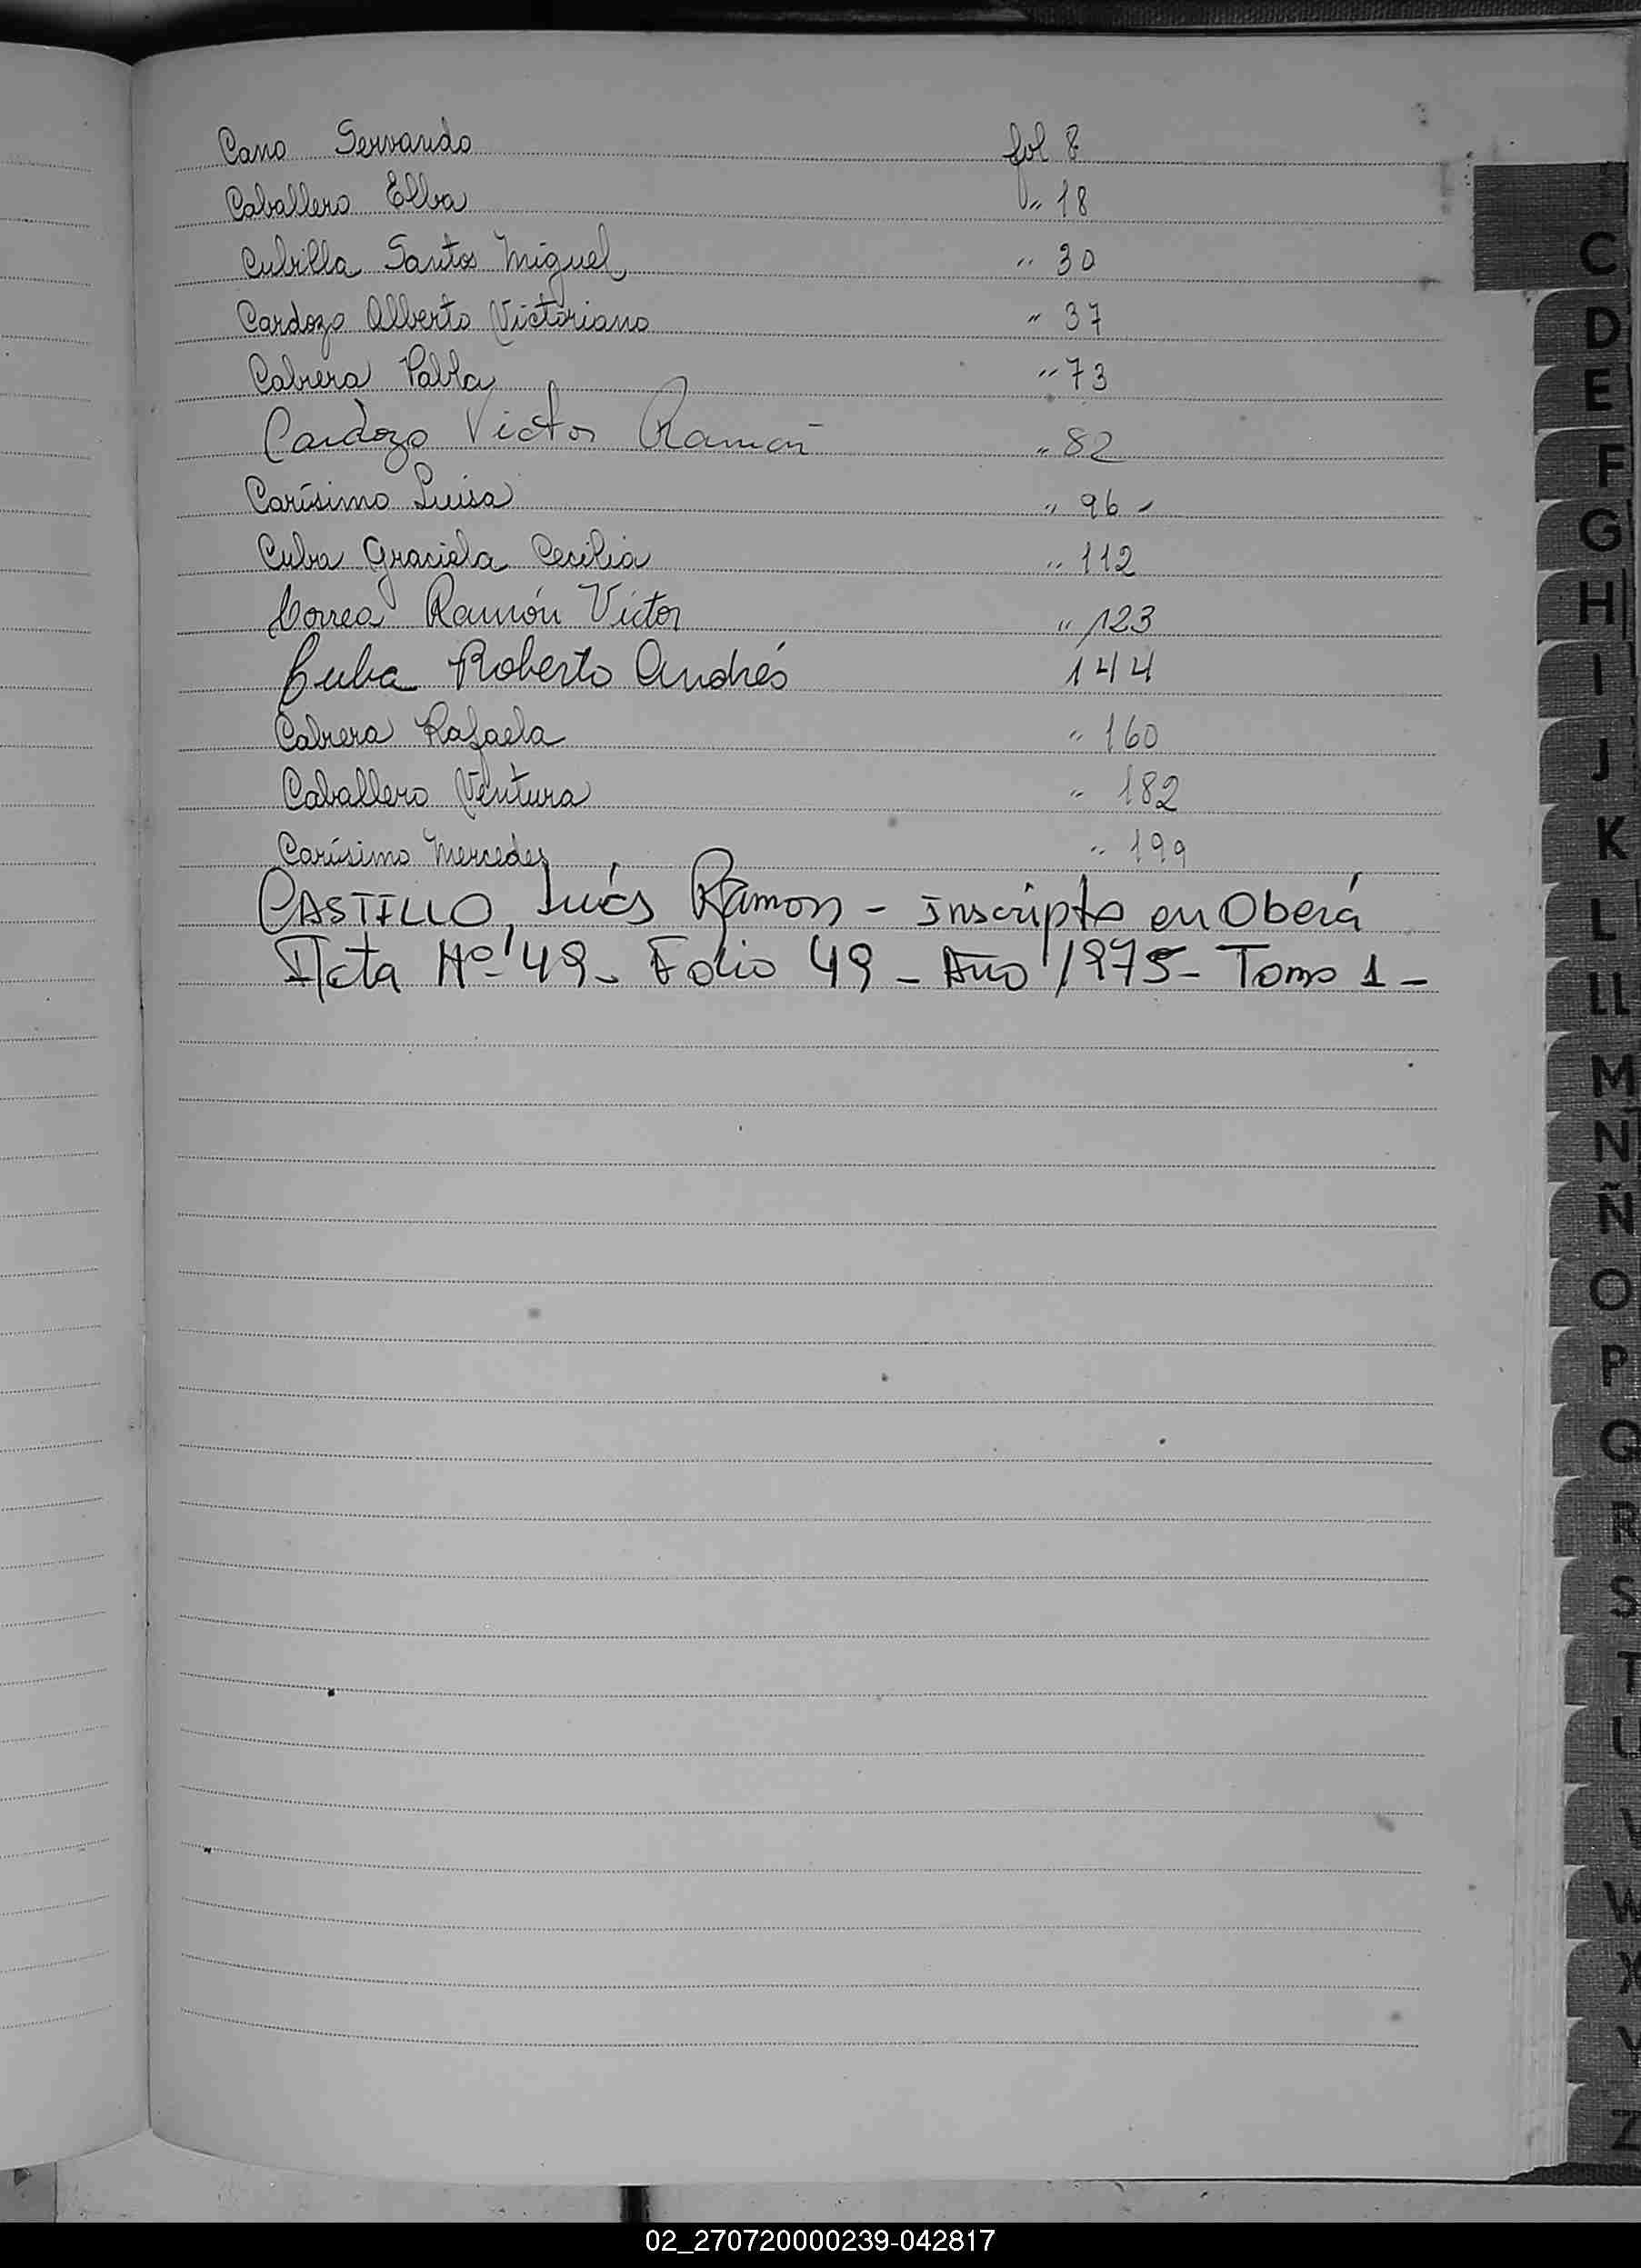 Cano Servando fol 8
Caballero Elba " 18
Cubilla Santos Miguel " 30
Cardozo Alberto Victoriano " 37
Cabrera Pabla " 73
Cardozo Victor Ramón " 82
Carísimo Luisa " 96 -
Cuba Graciela Cecilia " 112
Correa Ramón Victor " 123
Cuba Roberto Andrés 144
Cabrera Rafaela " 160
Caballero Ventura " 182
Carísimo Mercedes " 199
CASTILLO, Inés Ramon - inscripto en Oberá
Acta Nº 49 - Folio 49 - Año 1975 - Tomo 1 -
C
D
E
F
G
H
I
J
K
L
Ll
M
N
Ñ
O
P
Q
R
S
T
U
V
W
X
Y
Z
02_270720000239-042817